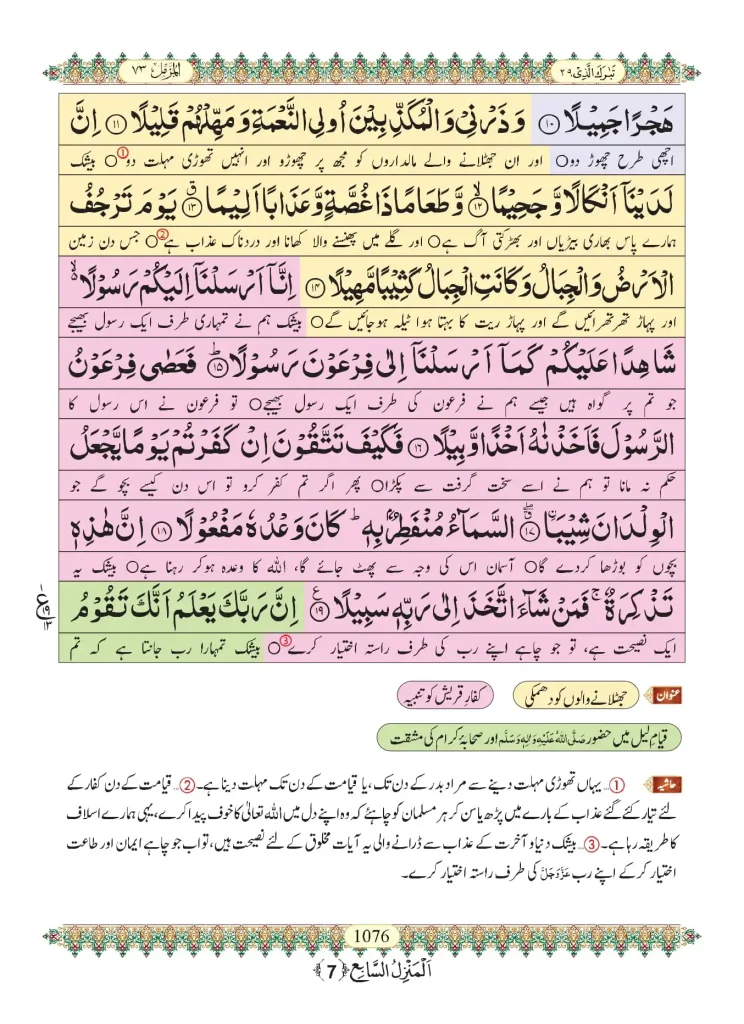 تَبٰرَكَ الَّذِیْ ٢٩
الْمُزَّمِّل ٧٣
هَجْرًا جَمِیْلًا ﴿۱۰﴾ وَ ذَرْنِیْ وَ الْمُكَذِّبِیْنَ اُولِی النَّعْمَةِ وَ مَهِّلْهُمْ قَلِیْلًا ﴿۱۱﴾ اِنَّ
اچھی طرح چھوڑ دو ○ اور ان جھٹلانے والے مالداروں کو مجھ پر چھوڑو اور انہیں تھوڑی مہلت دو ① ○ بیشک
لَدَیْنَاۤ اَنْكَالًا وَّ جَحِیْمًا ﴿ۙ۱۲﴾ وَّ طَعَامًا ذَا غُصَّةٍ وَّ عَذَابًا اَلِیْمًا ﴿ۗ۱۳﴾ یَوْمَ تَرْجُفُ
ہمارے پاس بھاری بیڑیاں اور بھڑکتی آگ ہے ○ اور گلے میں پھنسنے والا کھانا اور دردناک عذاب ہے ② ○ جس دن زمین
الْاَرْضُ وَ الْجِبَالُ وَ كَانَتِ الْجِبَالُ كَثِیْبًا مَّهِیْلًا ﴿۱۴﴾ اِنَّاۤ اَرْسَلْنَاۤ اِلَیْكُمْ رَسُوْلًا ۙ۬
اور پہاڑ تھرتھرائیں گے اور پہاڑ ریت کا بہتا ہوا ٹیلہ ہوجائیں گے ○ بیشک ہم نے تمہاری طرف ایک رسول بھیجے
شَاهِدًا عَلَیْكُمْ كَمَاۤ اَرْسَلْنَاۤ اِلٰی فِرْعَوْنَ رَسُوْلًا ﴿ؕ۱۵﴾ فَعَصٰی فِرْعَوْنُ
جو تم پر گواہ ہیں جیسے ہم نے فرعون کی طرف ایک رسول بھیجے ○ تو فرعون نے اس رسول کا
الرَّسُوْلَ فَاَخَذْنٰهُ اَخْذًا وَّبِیْلًا ﴿۱۶﴾ فَكَیْفَ تَتَّقُوْنَ اِنْ كَفَرْتُمْ یَوْمًا یَّجْعَلُ
حکم نہ مانا تو ہم نے اسے سخت گرفت سے پکڑا ○ پھر اگر تم کفر کرو تو اس دن کیسے بچو گے جو
الْوِلْدَانَ شِیْبَا ﴿ۗۖ۱۷﴾ السَّمَآءُ مُنْفَطِرٌۢ بِهٖ ؕ كَانَ وَعْدُهٗ مَفْعُوْلًا ﴿۱۸﴾ اِنَّ هٰذِهٖ
بچوں کو بوڑھا کردے گا ○ آسمان اس کی وجہ سے پھٹ جائے گا، اللہ کا وعدہ ہوکر رہنا ہے ○ بیشک یہ
تَذْكِرَةٌ ۚ فَمَنْ شَآءَ اتَّخَذَ اِلٰی رَبِّهٖ سَبِیْلًا ﴿۱۹﴾ اِنَّ رَبَّكَ یَعْلَمُ اَنَّكَ تَقُوْمُ
ایک نصیحت ہے، تو جو چاہے اپنے رب کی طرف راستہ اختیار کرے ③ ○ بیشک تمہارا رب جانتا ہے کہ تم
عنوان جھٹلانے والوں کو دھمکی کفارِ قریش کو تنبیہ
قیامِ لیل میں حضور صَلَّی اللہُ عَلَیْہِ وَاٰلِہٖ وَسَلَّم اور صحابۂ کرام کی مشقت
حاشیہ ①... یہاں تھوڑی مہلت دینے سے مراد بدر کے دن تک، یا قیامت کے دن تک مہلت دینا ہے۔ ②... قیامت کے دن کفار کے
لئے تیار کئے گئے عذاب کے بارے میں پڑھ یا سن کر ہر مسلمان کو چاہئے کہ وہ اپنے دل میں اللہ تعالیٰ کا خوف پیدا کرے، یہی ہمارے اسلاف
کا طریقہ رہا ہے۔ ③... بیشک دنیا و آخرت کے عذاب سے ڈرانے والی یہ آیات مخلوق کے لئے نصیحت ہیں، تو اب جو چاہے ایمان اور طاعت
اختیار کرکے اپنے رب عَزَّوَجَلَّ کی طرف راستہ اختیار کرے۔
1076
اَلْمَنْزِلُ السَّابِع ﴿7﴾